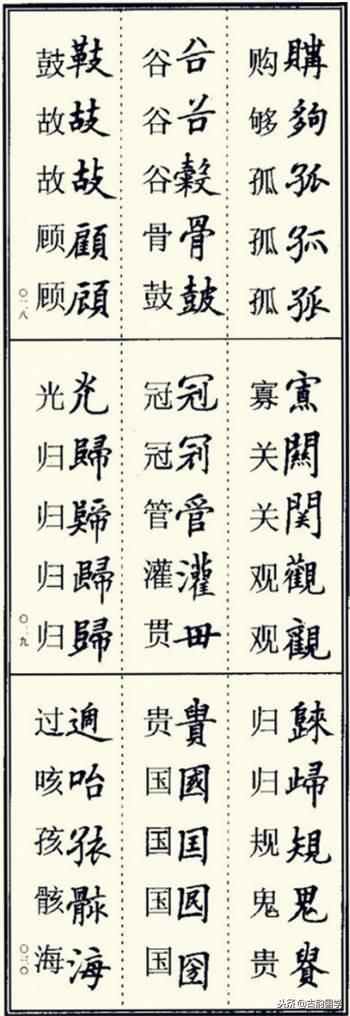 购 購
够 夠
孤 孤
孤 孤
孤 孤
谷 谷
谷 谷
谷 穀
骨 骨
鼓 皷
鼓 鼓
故 故
故 故
顾 顧
顾 頋
〇二八
寡 寡
关 關
关 関
观 觀
观 觀
冠 冠
冠 冠
管 管
灌 灌
贯 毌
光 光
归 歸
归
归 歸
归 歸
〇二九
归
归
规 規
鬼 鬼
贵
贵 貴
国 國
国 囯
国
国
过 過
咳 咍
孩 孩
骸 骸
海 海
〇三〇
头条@古韵国学